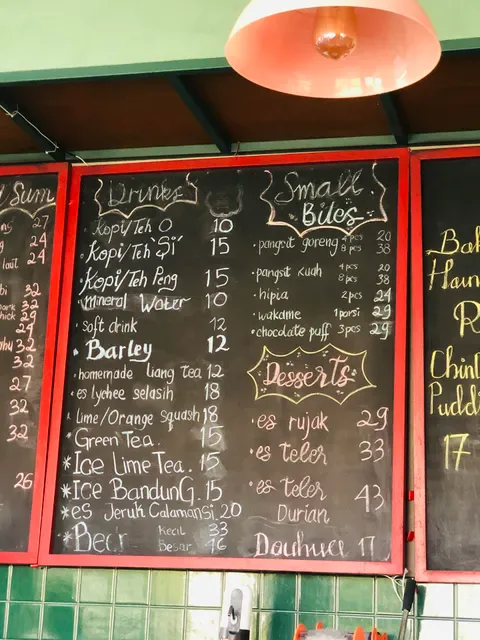 Sum
27
24
24
laut
32
32
29
24
32
32
27
32
32
26
Drinks
Kopi/Teh O 10
Kopi/Teh "Si" 15
Kopi/Teh Peng 15
mineral Water 10
soft drink 12
Barley 12
homemade liang tea 12
es lychee selasih 18
Lime/Orange squash 18
Green Tea. 15
*Ice Lime Tea. 15
*Ice BanduNG. 15
*es Jeruk Calamansi. 20
*Beer kecil 33
besar 46
Small
Bites
pangsit goreng 4 pcs 20
8 pcs 38
pangsit kuah 4 pcs 20
8 pcs 38
hipia 2 pcs 24
wakame 1 porsi 29
chocolate puff 3 pcs 29
Desserts
es rujak 29
es teler 33
es teler 43
Durian
Douhwee 17
17